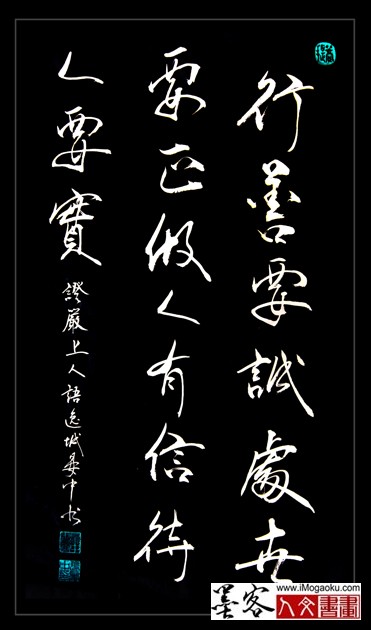 行善要誠處世
要正做人有信待
人要實
證嚴上人語逸城中書
www.iMogaoku.com
墨客人文書畫